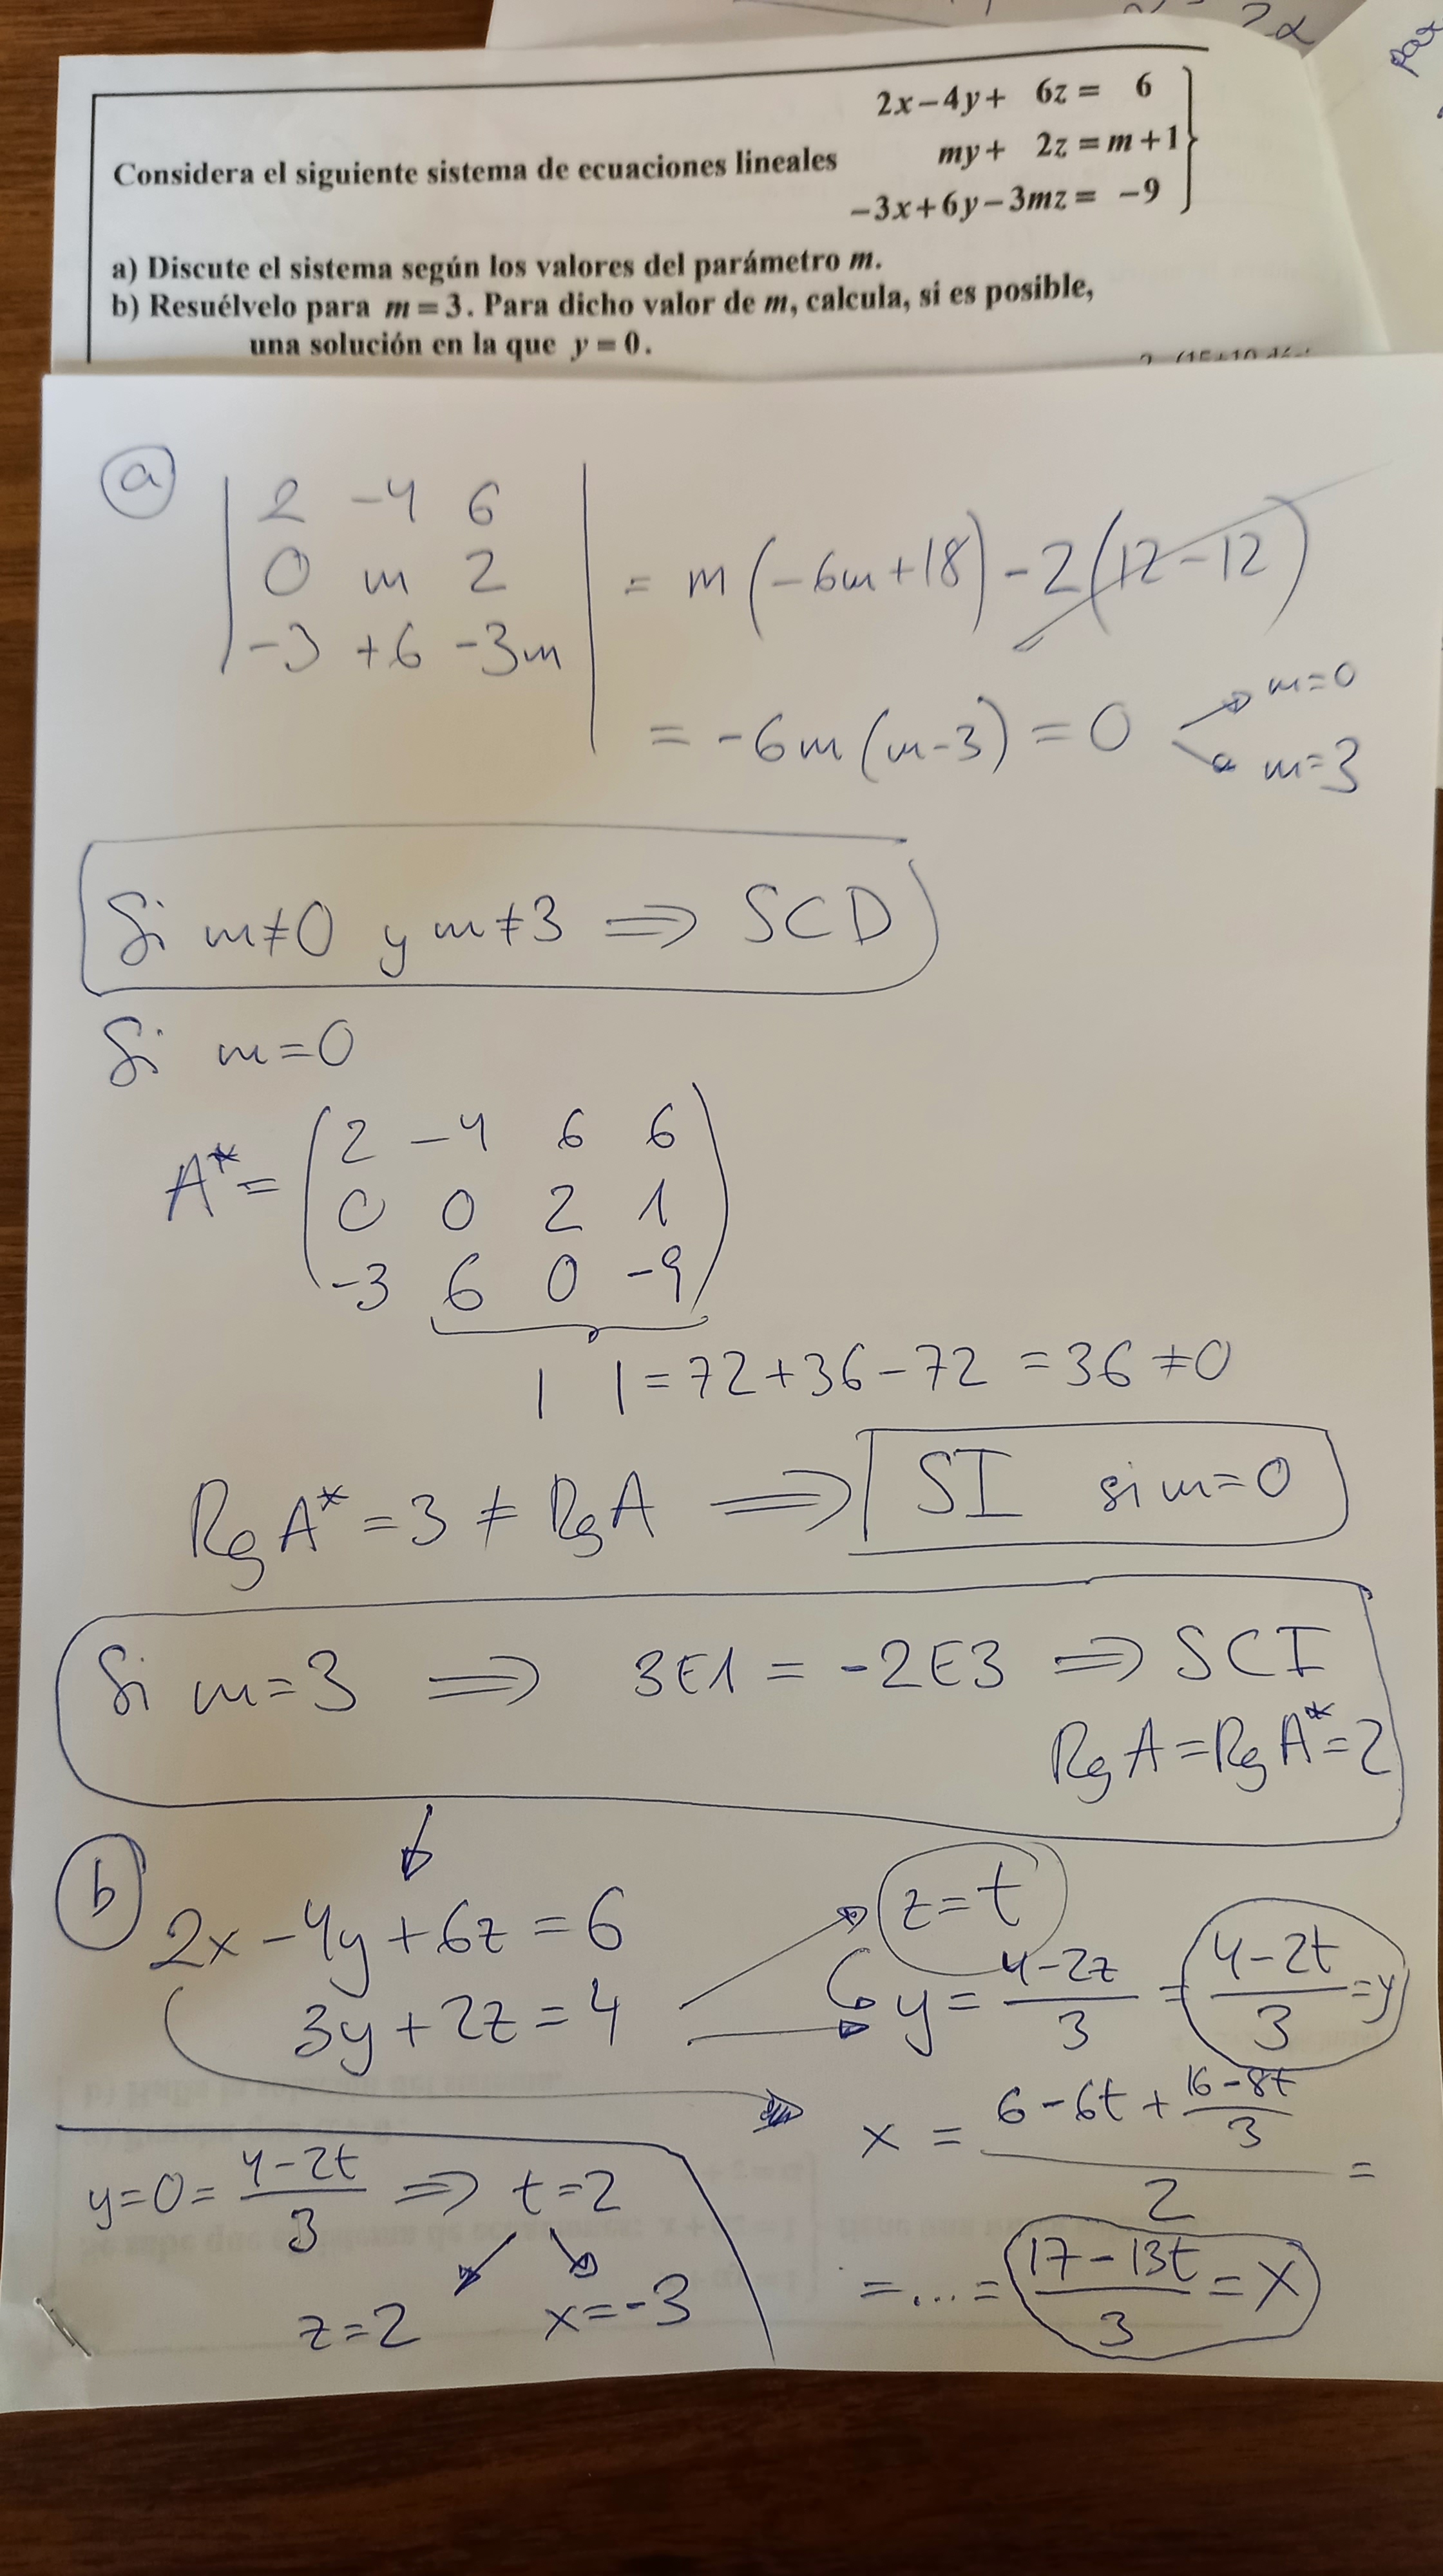 2α
par
2x-4y+ 6z= 6
Considera el siguiente sistema de ecuaciones lineales my+ 2z=m+1}
-3x+6y-3mz= -9
a) Discute el sistema según los valores del parámetro m.
b) Resuélvelo para m=3. Para dicho valor de m, calcula, si es posible,
una solución en la que y=0.
a
| 2 -4 6 |
| 0 m 2 | = m(-6m+18)-2(12-12)
| -3 +6 -3m |
= -6m(m-3)=0 → m=0
→ m=3
Si m≠0 y m≠3 ⇒ SCD
Si m=0
A*= ( 2 -4 6 6 )
( 0 0 2 1 )
( -3 6 0 -9 )
| |=72+36-72=36≠0
Rg A*=3≠Rg A ⇒ SI si m=0
Si m=3 ⇒ 3E1=-2E3 ⇒ SCI
Rg A=Rg A*=2
b
2x-4y+6z=6 → z=t
3y+2z=4 → y=(4-2z)/3=(4-2t)/3=y
x=(6-6t+(16-8t)/3)/2=
=...=(17-13t)/3=x
y=0=(4-2t)/3 ⇒ t=2
z=2 x=-3